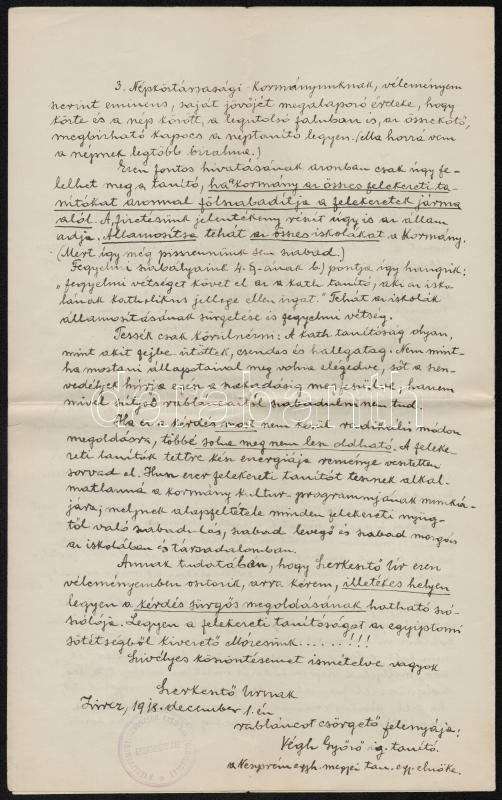 3. Népköztársasági Kormányunknak, véleményem
szerint eminens, saját jövőjét megalapozó érdeke, hogy
közte és a nép között, a legutolsó faluban is, az összekötő,
megbizható kapocs a néptanító legyen. (Ma hozzá van
a népnek legtöbb bizalma.)
Ezen fontos hivatásának azonban csak úgy fe-
lelhet meg a tanító, ha a kormány az összes felekezeti ta-
nítókat azonnal fölszabadítja a felekezetek járma
alól. A fizetésünk jelentékeny részét úgy is az állam
adja. Államosítsa tehát az összes iskolákat a Kormány.
(Mert így még pisszennünk sem szabad.)
Fegyelmi szabályaink 4. §-ának b.) pontja így hangzik:
"fegyelmi vétséget követ el az a kath. tanító, aki az isko-
lának katholikus jellege ellen izgat." Tehát az iskolák
államosításának sürgetése is fegyelmi vétség.
Tessék csak körülnézni: A kath. tanítóság olyan,
mint akit fejbe ütöttek, csendes és hallgatag. Nem mint-
ha mostani állapotával meg volna elégedve, sőt a szen-
vedélyek húrja ezen a szakadásig megfeszülve, hanem
mivel súlyos rabláncaitól szabadulni nem tud.
Ha ez a kérdés most nem kerül radikális módon
megoldásra, többé soha meg nem lesz oldható. A feleke-
zeti tanítók tettre kész energiája reménye vesztetten
sorvad el. Hunzer felekezeti tanítót tennek alkal-
matlanná a kormány kultur-programmjának munká-
jára; melynek alapfeltétele minden felekezeti nyűg-
től való szabadulás, szabad levegő és szabad mozgás
az iskolában és társadalomban.
Annak tudatában, hogy Szerkesztő Úr ezen
véleményemben osztozik, arra kérem, illetékes helyen
legyen a kérdés sürgős megoldásának hatható szó-
szólója. Legyen a felekezeti tanítóságot az egyiptomi
sötétségből kivezető Mózesünk......!!!
Szívélyes köszöntésemet ismételve vagyok
Szerkesztő Úrnak
Zircz, 1918. december 1.-én
rabláncot csörgető
Végh Győző ig. tanító.
a Veszprém egyh. megyei tan. egy. elnöke.
darabanth